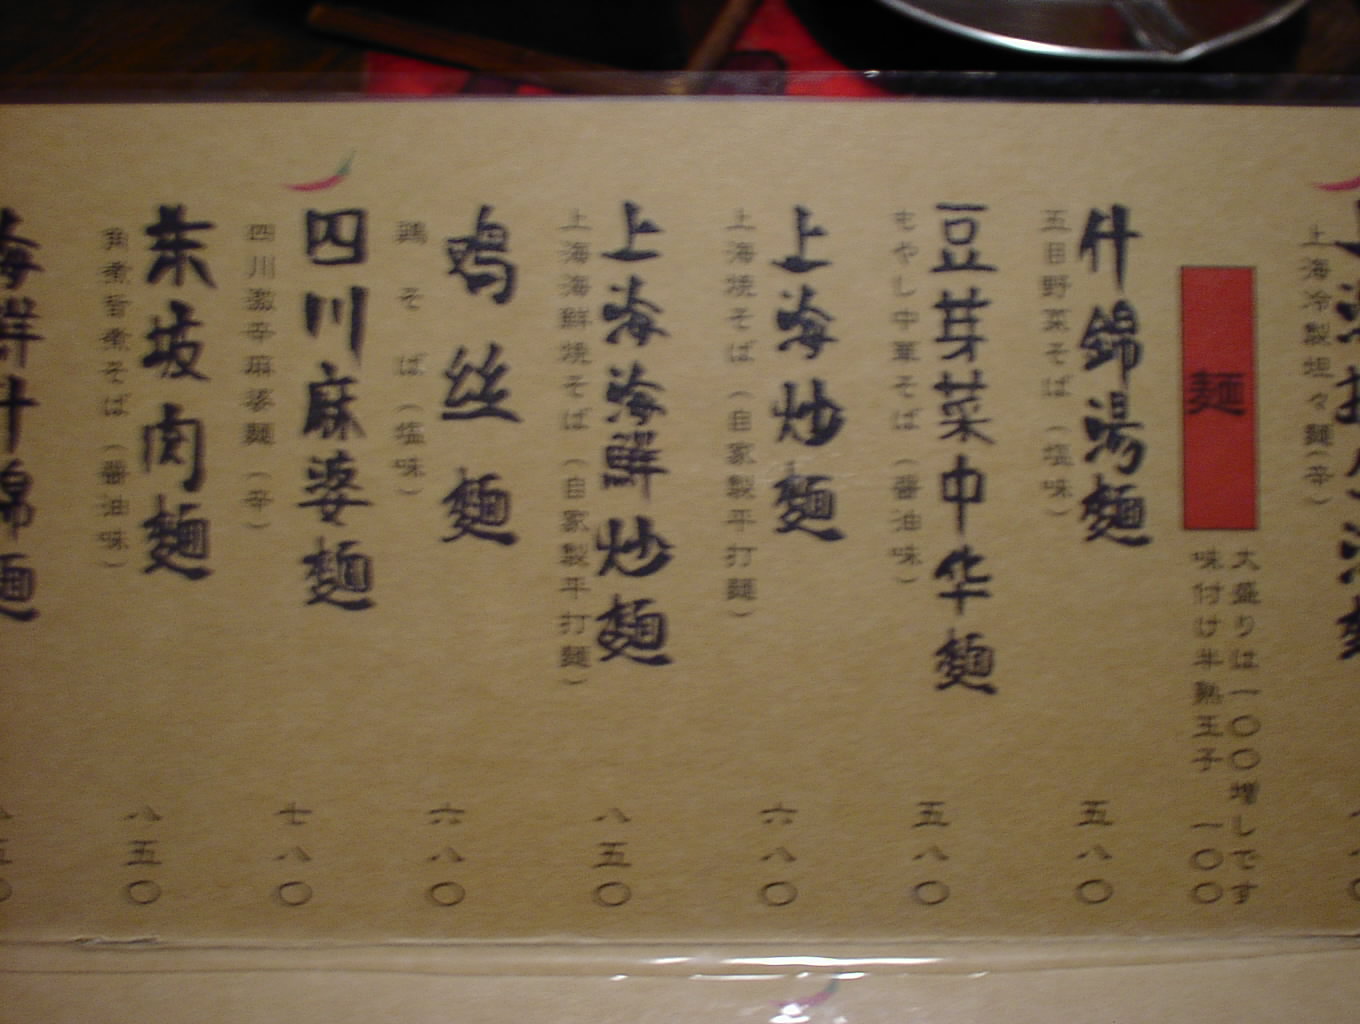 上海冷製坦々麺(辛)
麺
大盛りは一〇〇増しです
味付け半熟玉子 一〇〇
什錦湯麺
五目野菜そば(塩味)
五八〇
豆芽菜中华麺
もやし中華そば(醤油味)
五八〇
上海炒麺
上海焼そば(自家製平打麺)
六八〇
上海海鮮炒麺
上海海鮮焼そば(自家製平打麺)
八五〇
鸡丝麺
鶏そば(塩味)
六八〇
四川麻婆麺
四川激辛麻婆麺(辛)
七八〇
东坡肉麺
角煮旨煮そば(醤油味)
八五〇
海鮮什錦麺